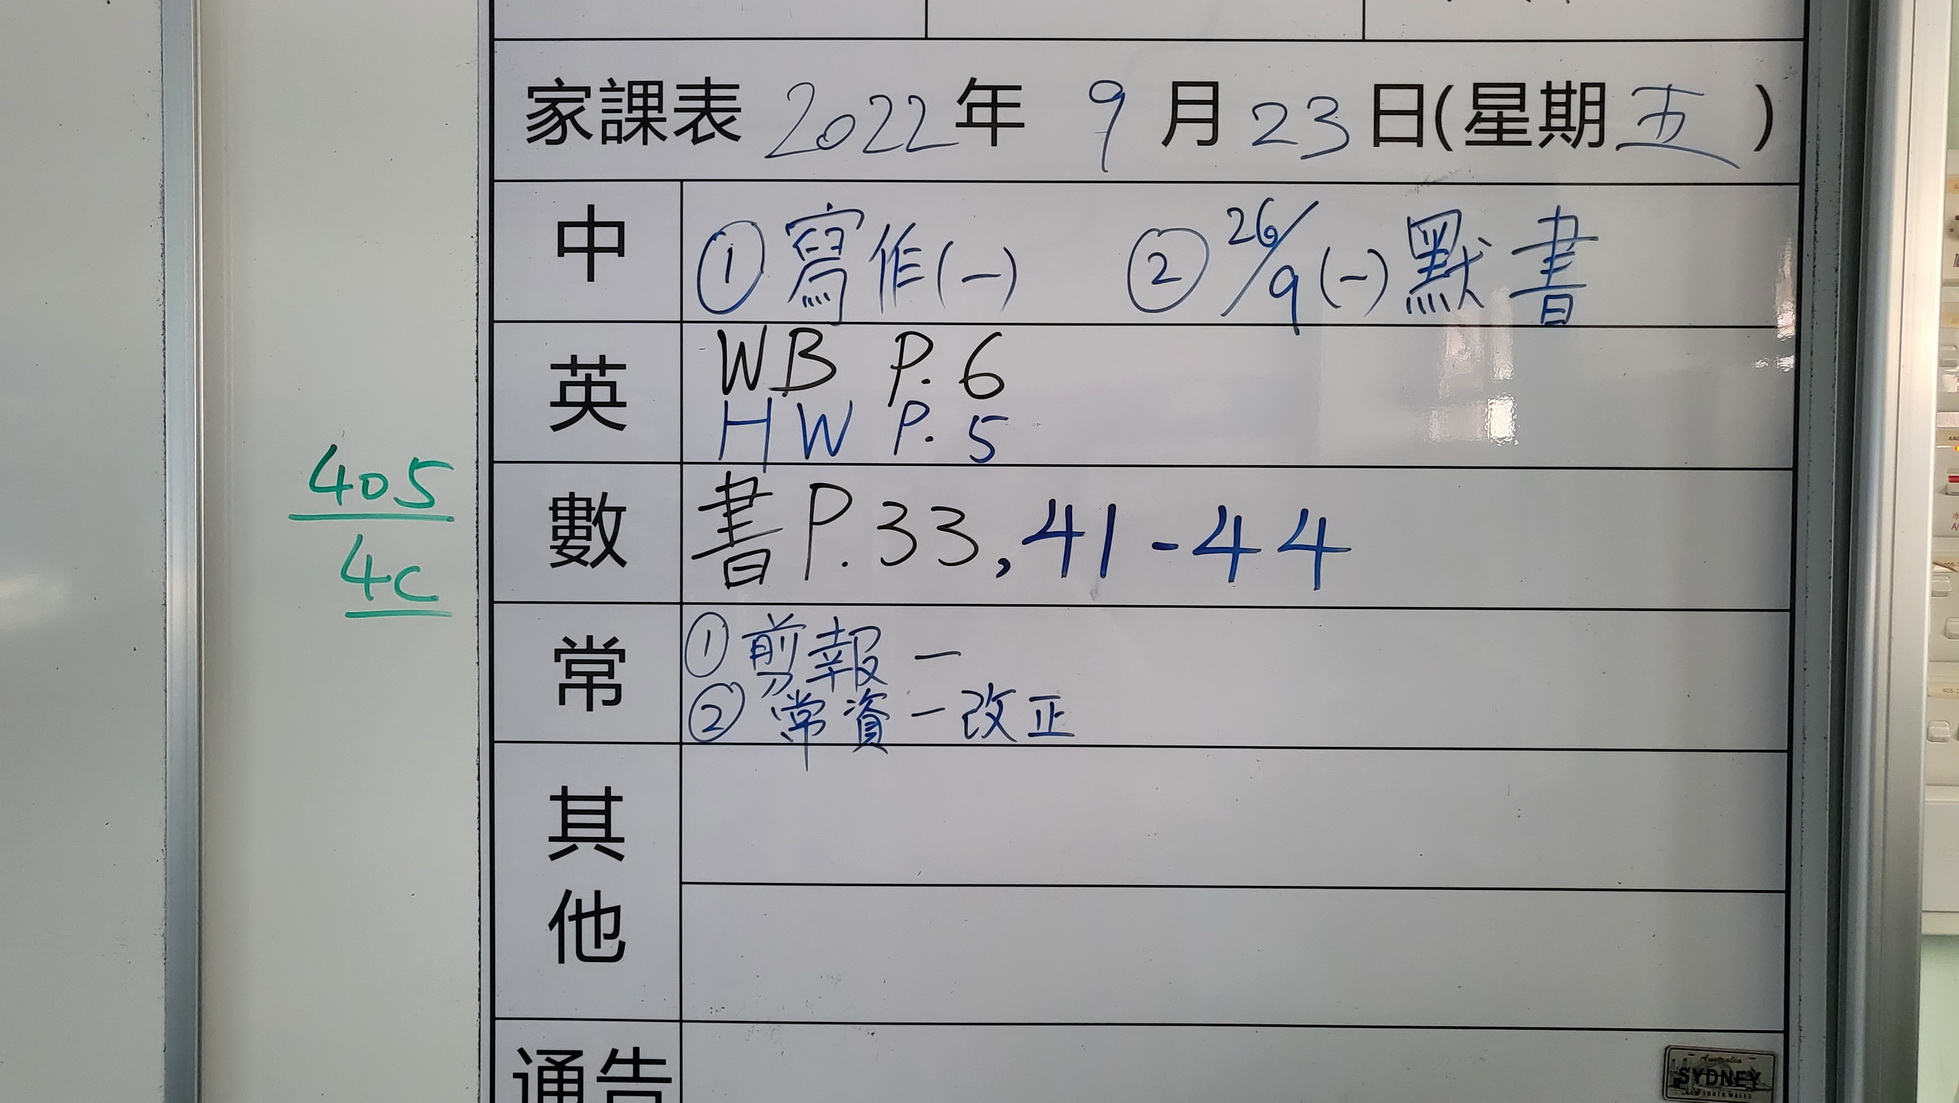 家課表 2022年 9月23日(星期五)
中 ①寫作(一) ②26/9(一)默書
英 WB P.6
HW P.5
數 書P.33,41-44
常 ①剪報一
②常資一改正
其他
通告
405
4C
Australia
SYDNEY